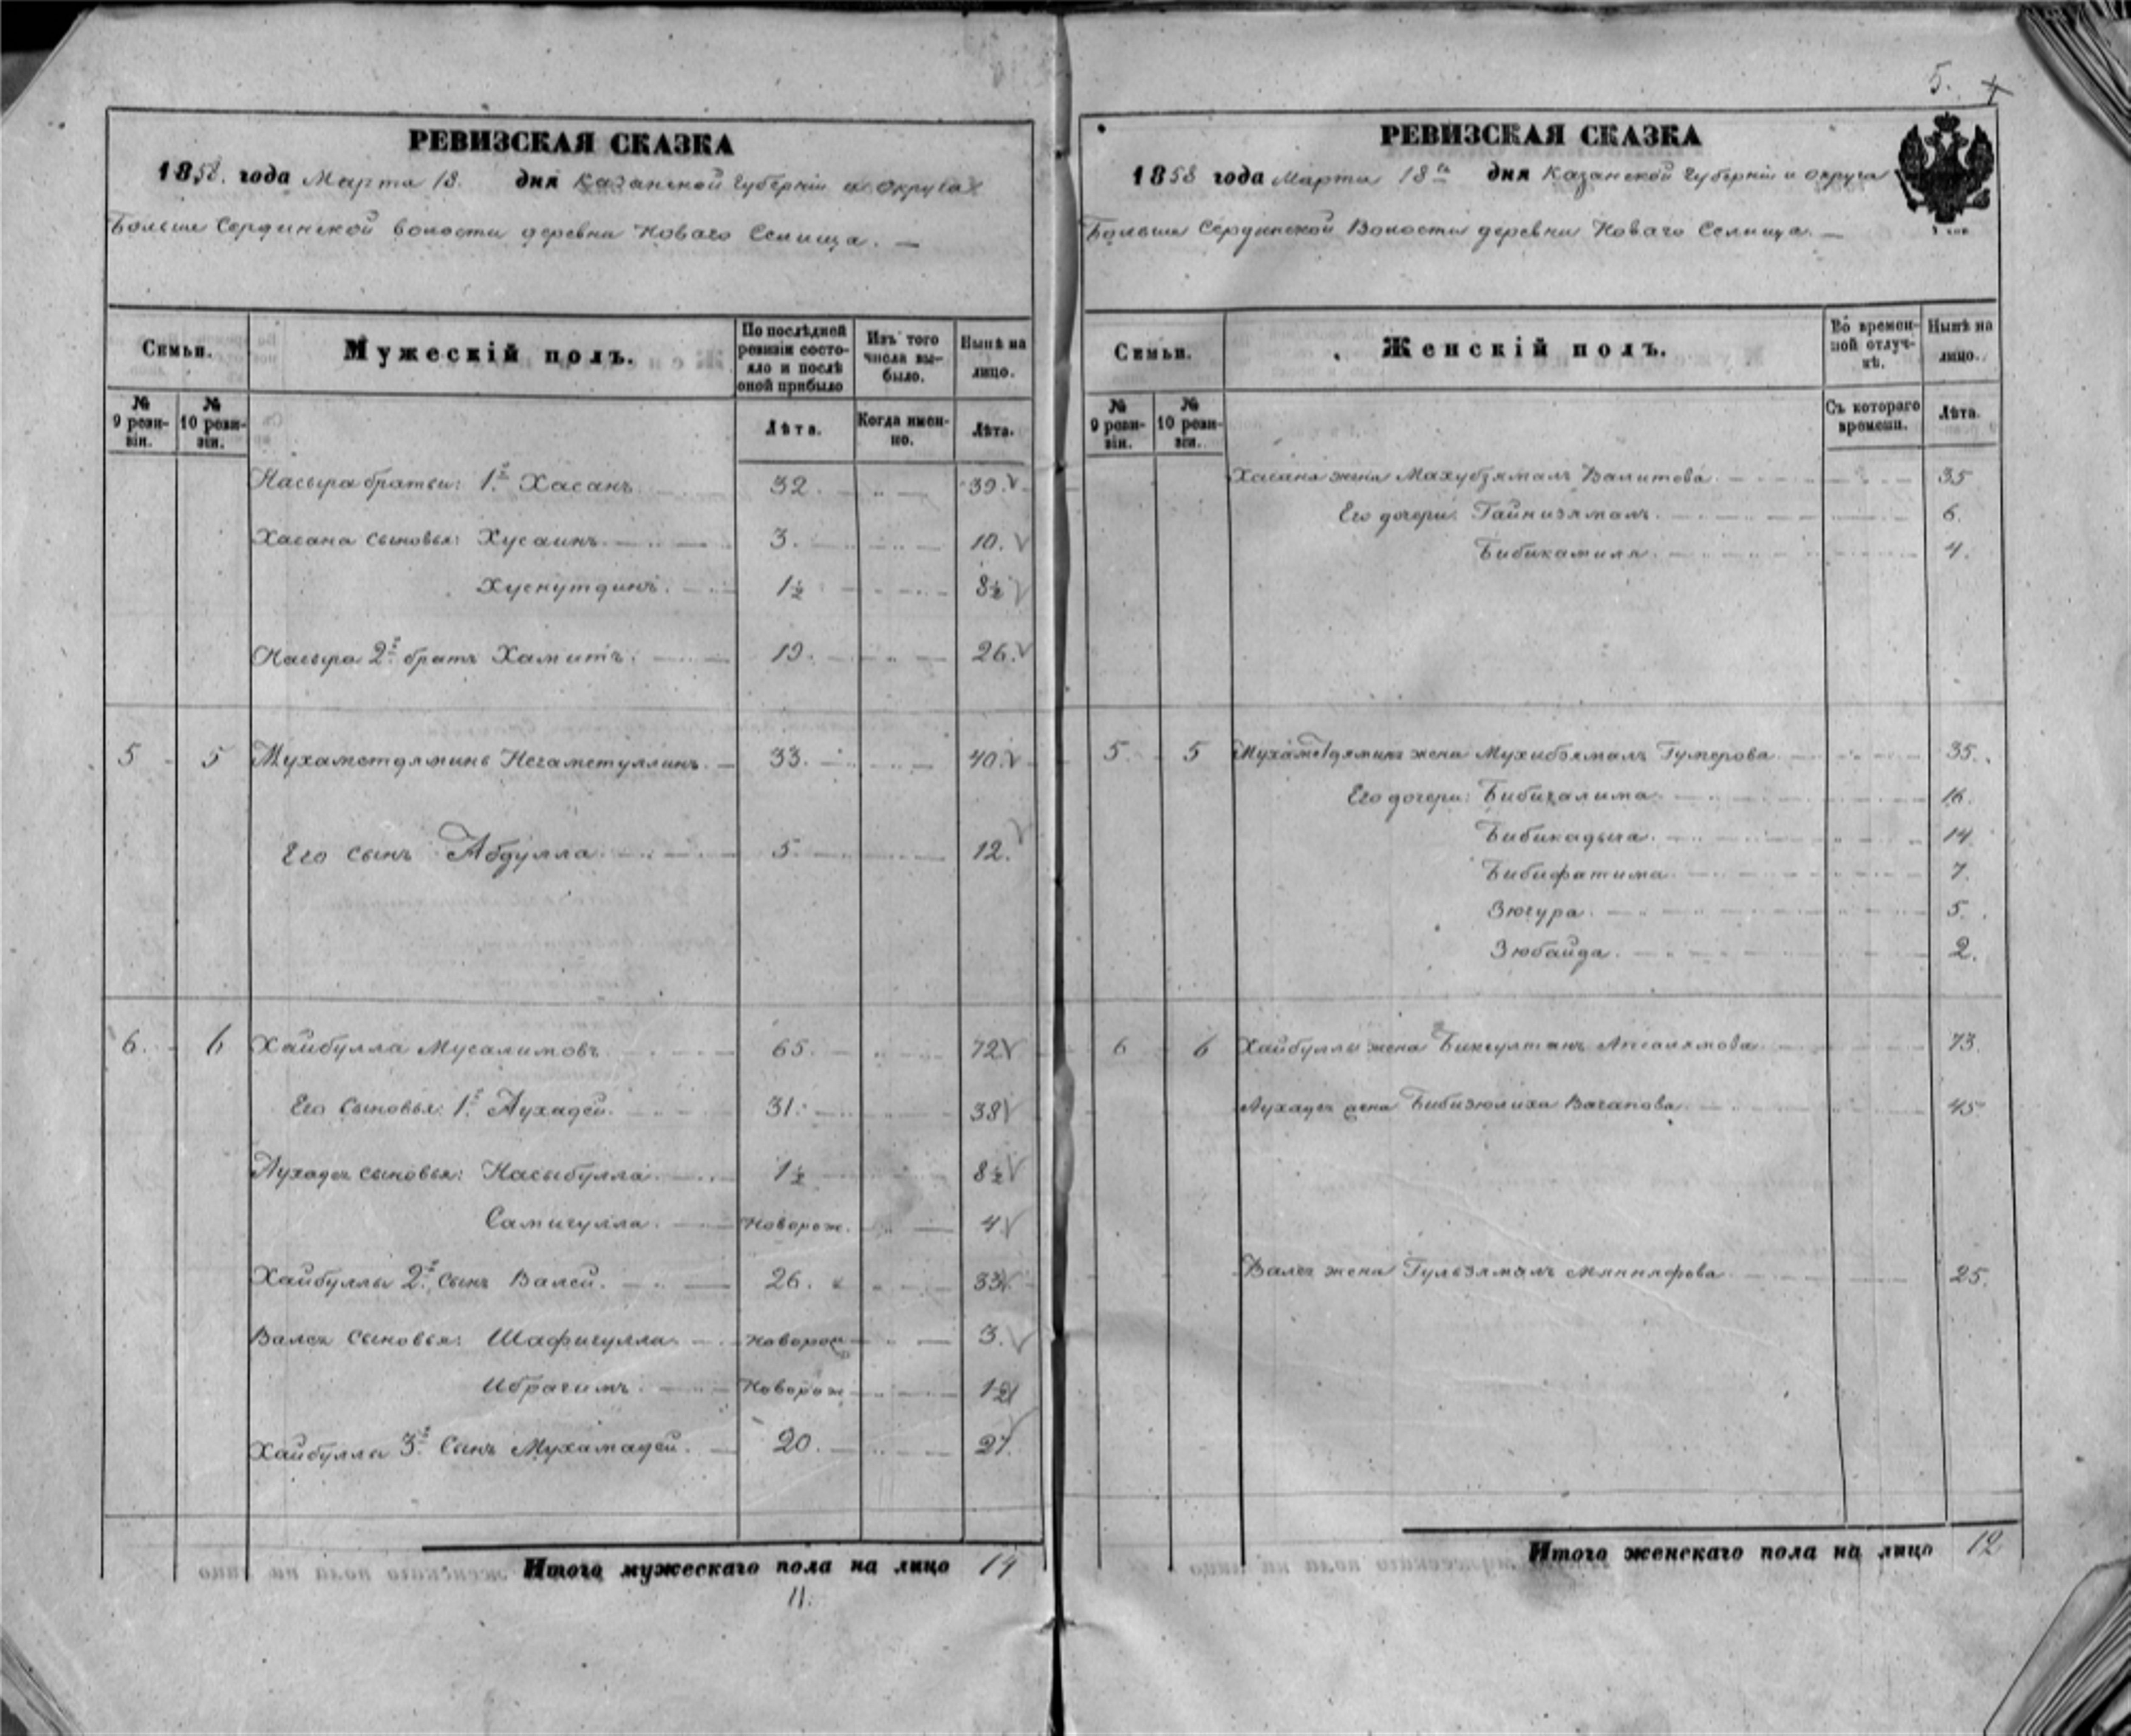 РЕВИЗСКАЯ СКАЗКА
1858. года Марта 18. дня Казанской губернии и округа
Больше Сердинской волости деревни Новаго Селища. —
Семьи.
Мужескій полъ.
По послѣдней ревизіи состояло и послѣ оной прибыло
Изъ того числа выбыло.
Нынѣ на лицо.
№ 9 ревизіи.
№ 10 ревизіи.
Лѣта.
Когда именно.
Лѣта.
Насыра братьи: 1й Хасанъ 32. 39.
Хасана сыновья: Хусаинъ 3. 10.
Хуснутдинъ. 1½ 8½
Насыра 2й братъ Хамитъ. 19. 26.
5 5 Мухаметдяминъ Негаметуллинъ. 33. 40.
Его сынъ Абдулла. 5. 12.
6. 6 Хайбулла Мусалимовъ 65. 72
Его сыновья: 1й Аухадей. 31. 38
Аухадея сыновья: Насыбулла. 1½ 8½
Самигулла. Новорож. 4
Хайбуллы 2й сынъ Валей. 26. 33
Валея сыновья: Шафигулла Новорож 3.
Ибрагимъ. Новорож
Хайбуллы 3й сынъ Мухамадей. 20. 27.
Итого мужескаго пола на лицо 14
11.
5.
РЕВИЗСКАЯ СКАЗКА
1858 года Марта 18го дня Казанской губерніи и округа
Больше Сердинской Волости деревни Новаго Селища. —
Семьи.
Женскій полъ.
Во временной отлучкѣ.
Нынѣ на лицо.
№ 9 ревизіи.
№ 10 ревизіи.
Съ котораго времени.
Лѣта.
Хасана жена Махубзямалъ Валитова 35
Его дочери: Гайнизямалъ. 6.
Бибикамиля. 4.
5. 5 Мухаметдямина жена Мухибзямалъ Гумерова 35.
Его дочери: Бибигалима. 16.
Бибикадыча. 14
Бибифатима 7.
Зюгура. 5.
Зюбайда. 2.
6 6 Хайбуллы жена Апсалямова 73.
Аухадея жена Бибизюлиха Вагапова 45
Валея жена Гульзямалъ 25.
Итого женскаго пола на лицо 12